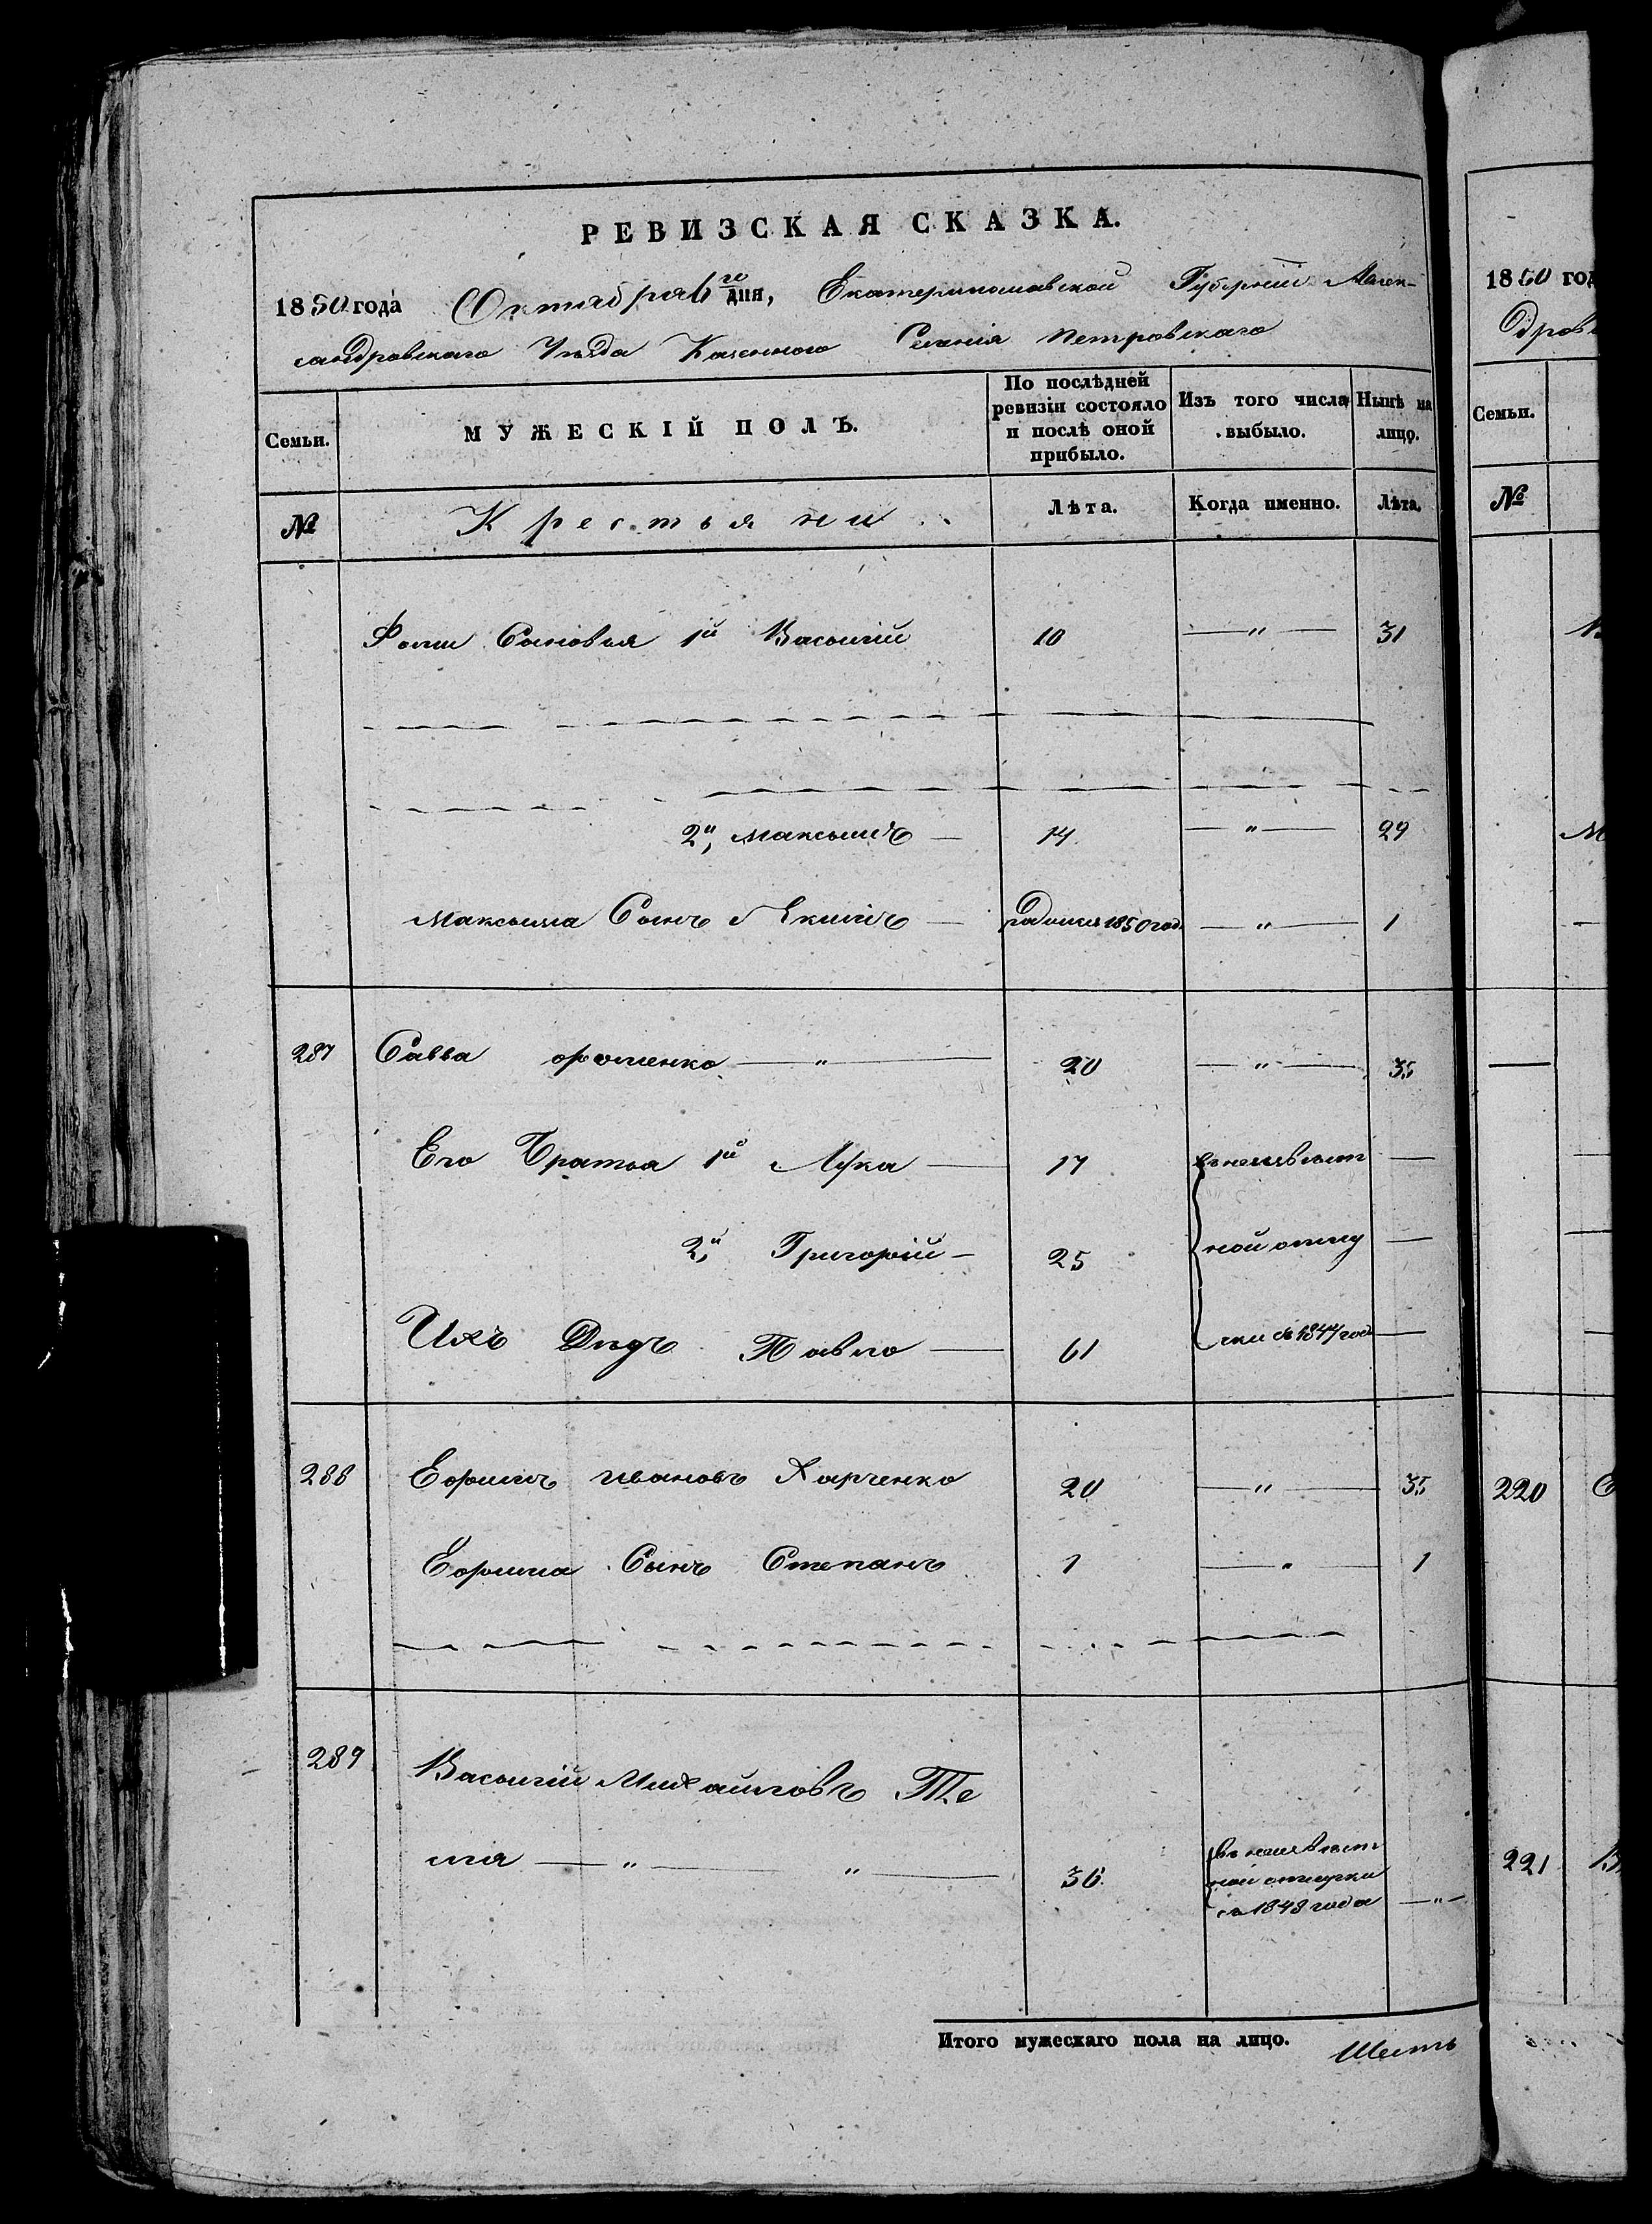 РЕВИЗСКАЯ СКАЗКА.
1850 года Октября 6го дня, Екатеринославской Губерніи Алек-
сандровского Уѣзда Казенного Селенія Петровского
Семьи. МУЖЕСКІЙ ПОЛЪ. По послѣдней ревизіи состояло и послѣ оной прибыло. Изъ того числа выбыло. Нынѣ на лицо.
№ Крестьяни Лѣта. Когда именно. Лѣта.
Фомы Сыновья 1й Василій 10 — " — 31
2й, Максимъ — 14 — " — 29
Максима Сынъ Якимъ — родился 1850 год. — " — 1
287 Савва Фоменко — " — 20 — " — 35
Его Братья 1й Лука — 17 въ неизвѣст —
2й, Григорій — 25 ной отлу —
Ихъ Дядъ Павло — 61 чки съ 1847 года —
288 Ефимъ Ивановъ Харченко 20 — " — 35
Ефима Сынъ Степанъ 1 — " — 1
289 Василій Михайловъ Те
ля — " — " — 36 въ неизвѣст
ной отлучки
съ 1848 года — " —
Итого мужескаго пола на лицо. Шесть
1850 год
дровс
Семьи.
№
220
221